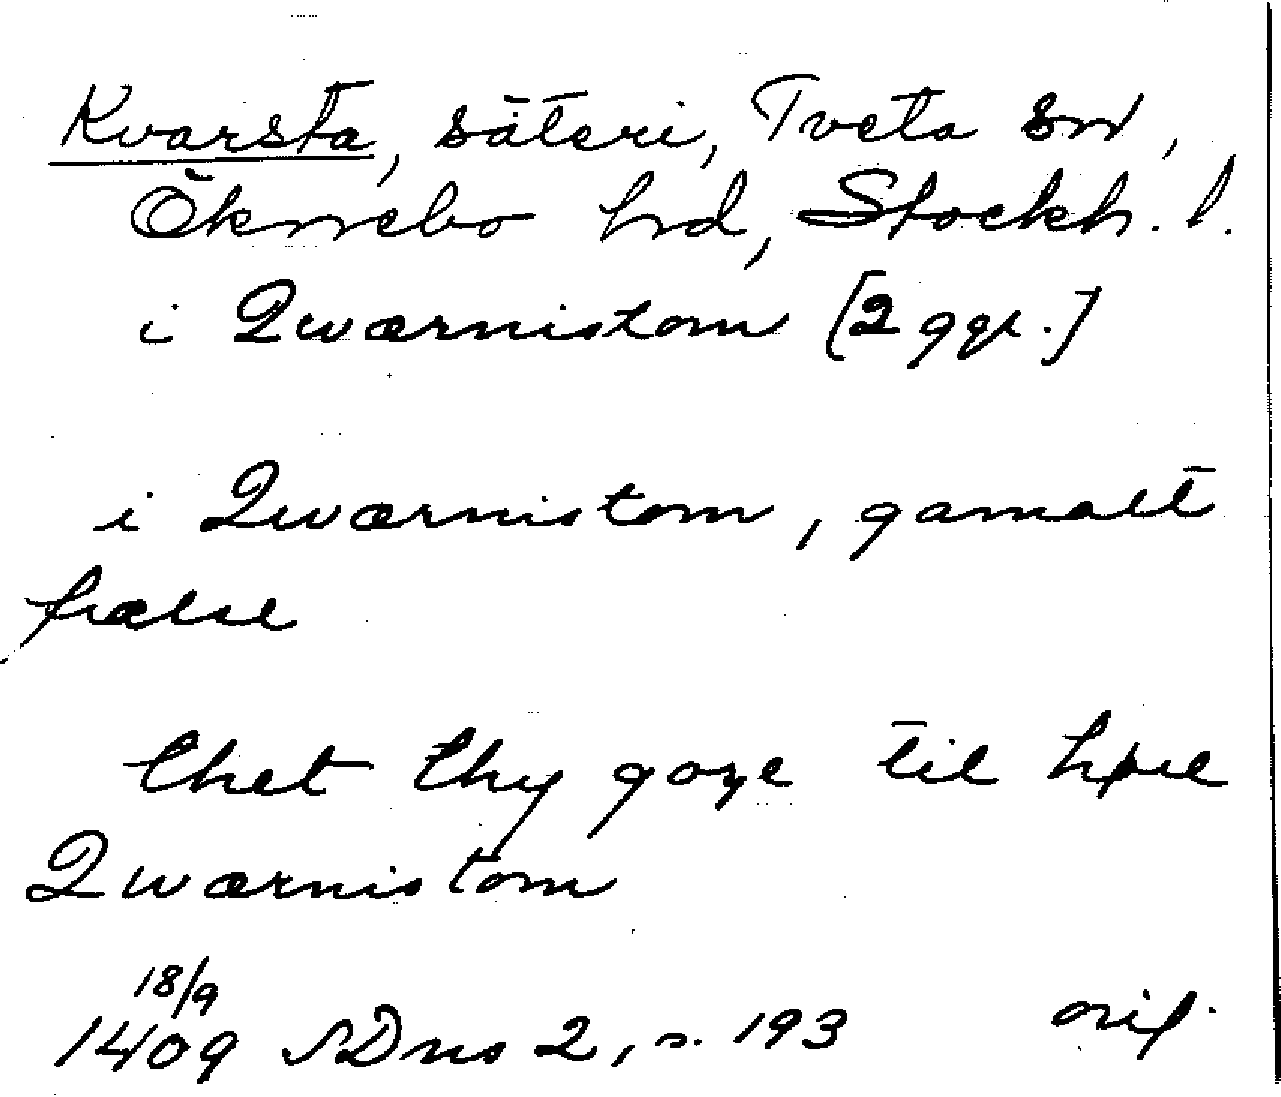 Kvarsta, säteri, Tveta sn,
Öknebo hd, Stockh. l.
i Qwærnistom [2 ggr.]
i Qwærnistom, gamalt
frælse
thet thy goze til høre
Qwærnistom
18/9
1409 SDns 2, s. 193 orig.